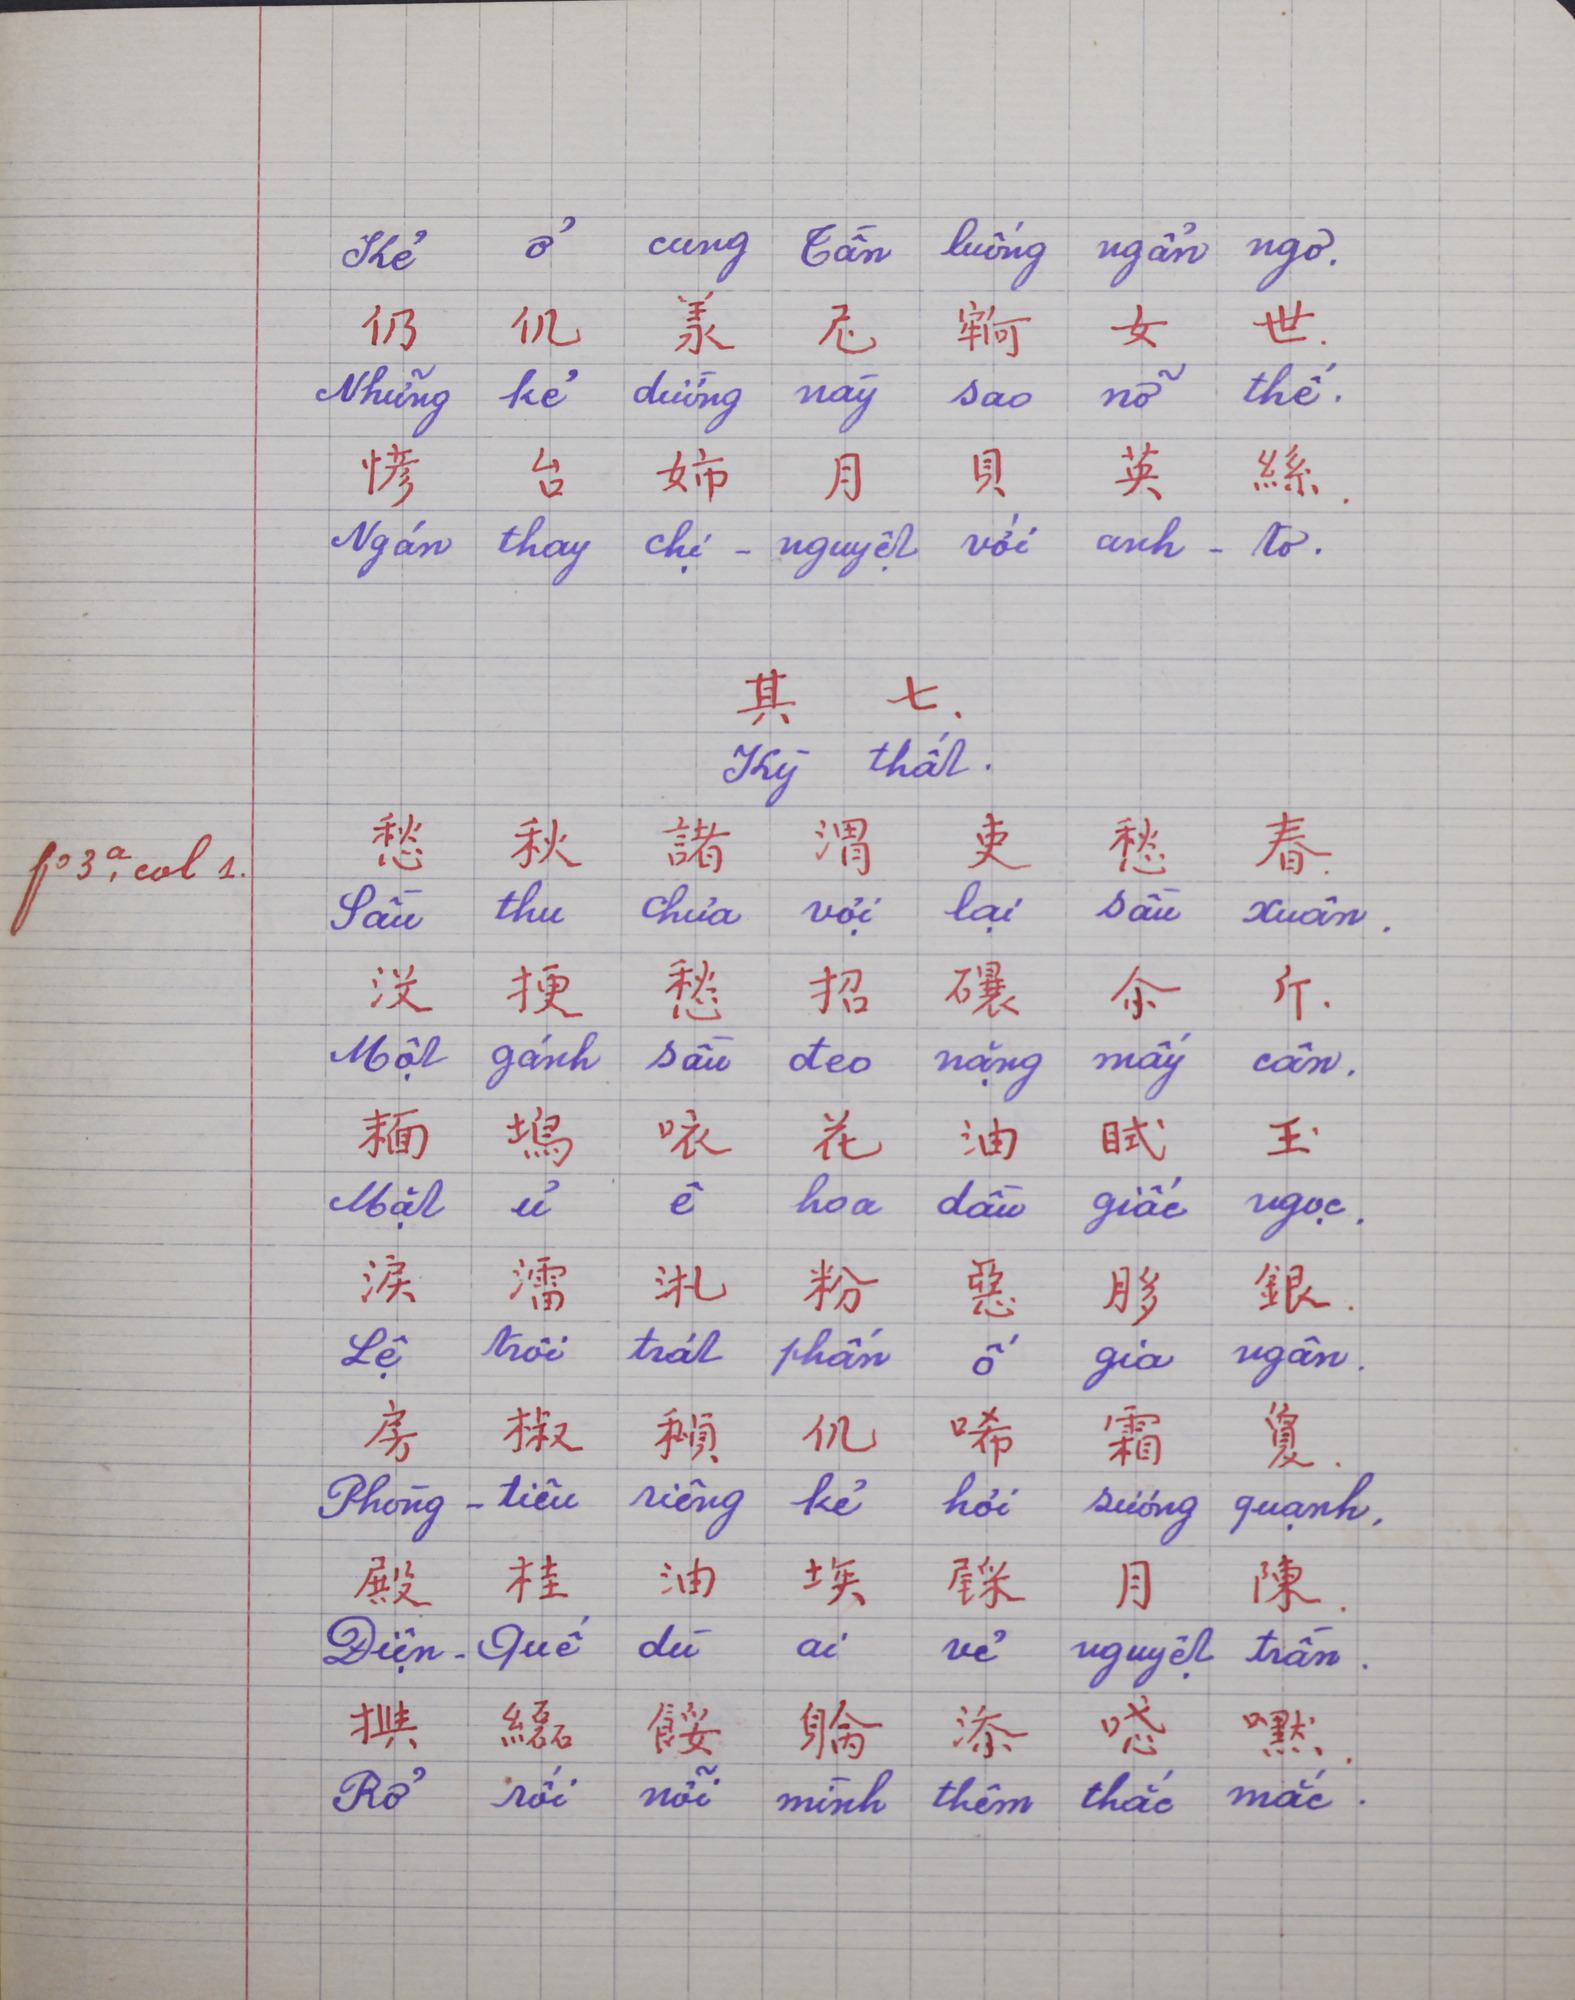 Kẻ ở cung Tần luống ngẩn ngơ.
仍 仉 羕 尼 女 世.
Những kẻ dường này sao nỡ thế.
台 姉 月 貝 英 絲.
Ngán thay chị - nguyệt với anh - tơ.
其 七.
Kỳ thất.
愁 秋 諸 渭 吏 愁 春.
fº 3ª, col 1.
Sầu thu chưa vợi lại sầu xuân.
没 挭 愁 招 余 斤.
Một gánh sầu đeo nặng mấy cân.
塢 哀 花 油 玉
Mặt ủ ê hoa dầu giấc ngọc.
淚 粉 惡 銀.
Lệ trôi trát phấn ố gia ngân.
房 椒 仉 唏 霜 敻.
Phòng - tiêu riêng kẻ hơi sương quạnh.
殿 桂 油 埃 月 陳.
Điện - Quế dù ai vẻ nguyệt trần.
餒 添 嘿.
Rở rối nỗi mình thêm thắc mắc.